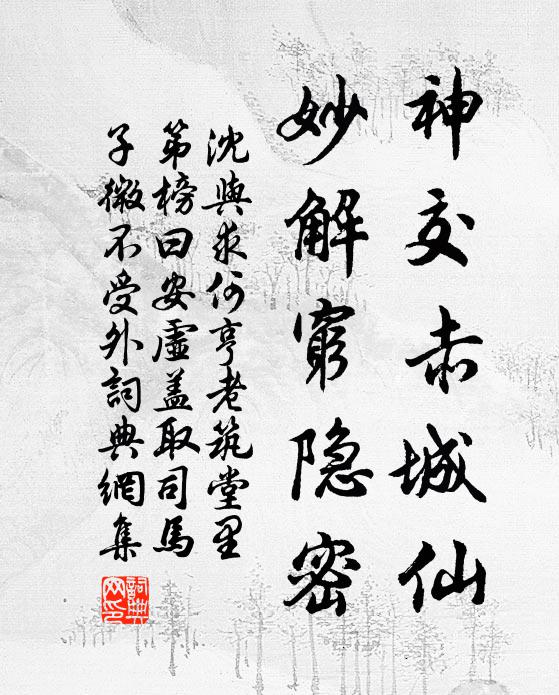 神交赤城仙
妙解窮隐密
沈與求何亨老筑堂里
第榜曰安虛盖取司馬
子微不受外詞典網集
詞典